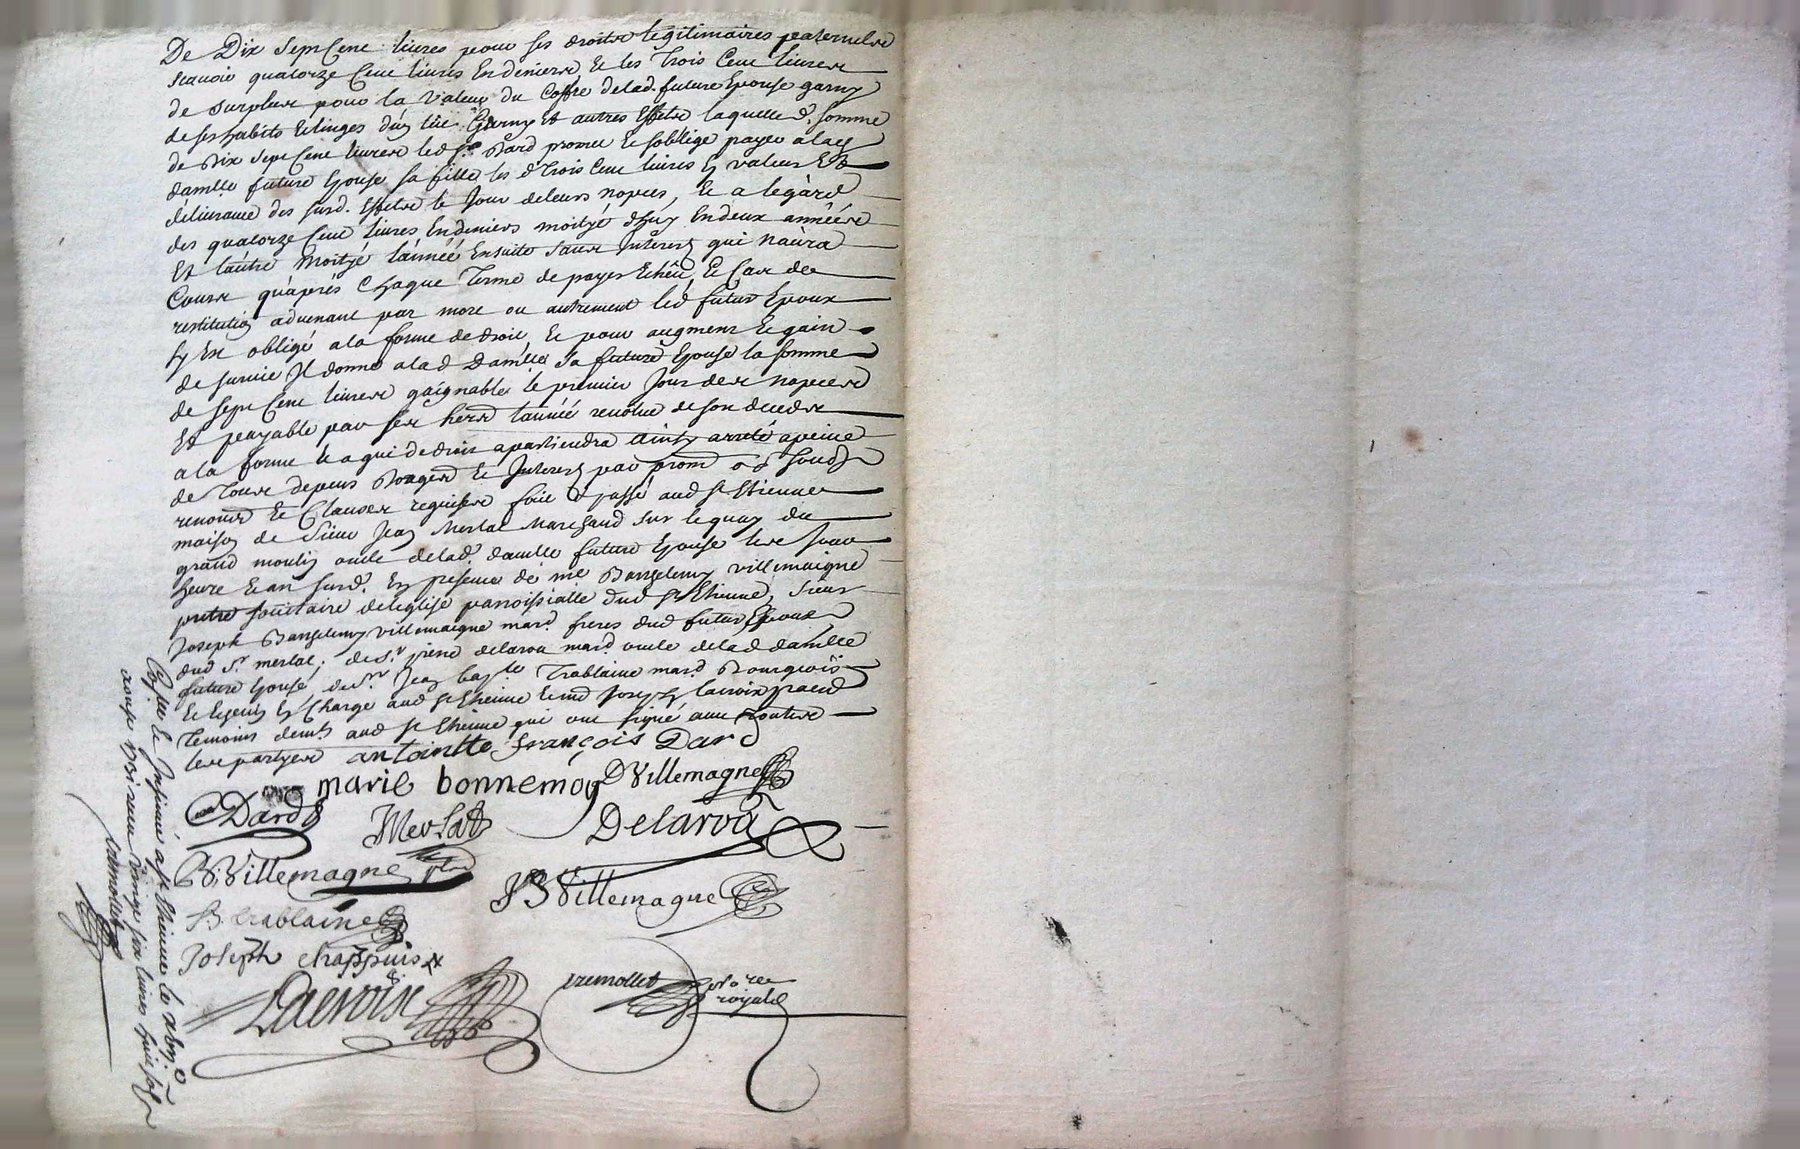 De Dix Sept Cent livres pour ses droits legitimaires paternels
scauoir quatorze Cent livres En deniers, Et les Trois Cent livres
de surplus pour la valeur du Coffre delad. future Epouse garny
de ses habits Et linges d'un lit Garny Et autres Effets laquelle d. somme
de Dix Sept Cent livres led Sr Dard promet Et soblige payer a lad
damlle future Epouse sa fille les d Trois Cent livres En valeur Et
déliurance des susd. Effets le Jour de leurs nopces, Et a legard
des quatorze Cent livres En deniers moityé d'huy En deux années
Et l'autre Moityé l'année Ensuite sans Interest qui naura
Cours qu'après Chaque Terme de payer Echeu, Et Cas de
restitution aduenant par mort ou autrement led futur Epoux
sy Est obligé a la forme de droit, Et pour augment Et gain
de suruie Il donne a lad Damlle sa future Epouse la somme
de Sept Cent livres gaignable le premier Jour des nopces
Et payable par ses hers l'année reuolue de son deceds
a la forme Et a qui de droit apartiendra ainsy arreté a peine
de Tous depens Domages Et Interest par prom
renons Et Clauses requises fait Et passé aud St Etienne
maison de Sieur Jean Merlat Marchand sur le quay du
grand moulin oncle delad. damlle future Epouse les Jour
heure Et an susd. En presence de me Barthelemy villemaigne
pretre societaire de l'Eglise parroissialle dud St Etienne, Sieur
Joseph Barthelemy villemaigne mard. freres dud futur Epoux
dud Sr merlat, de Sr pierre delaroa mard. oncle delad damlle
future Epouse, du Sr Jean bapte Trablaine mard Bourgeois
Et Echeuin En Charge aud St Etienne Et md Joseph lacroix praen
Temoins demts aud St Etienne qui ont signé auec
les partyes antointte françois Dard
marie bonnemoy DVillemagne
Dard Merlat Delaroa
B.Villemagne ptre JBVillemagne
JB trablaine
Joseph chappuis
Lacroix tremollet no.re
royal
Con.le Et Insinué a St Etienne le
recu vingt six livres huit sols
tremollet